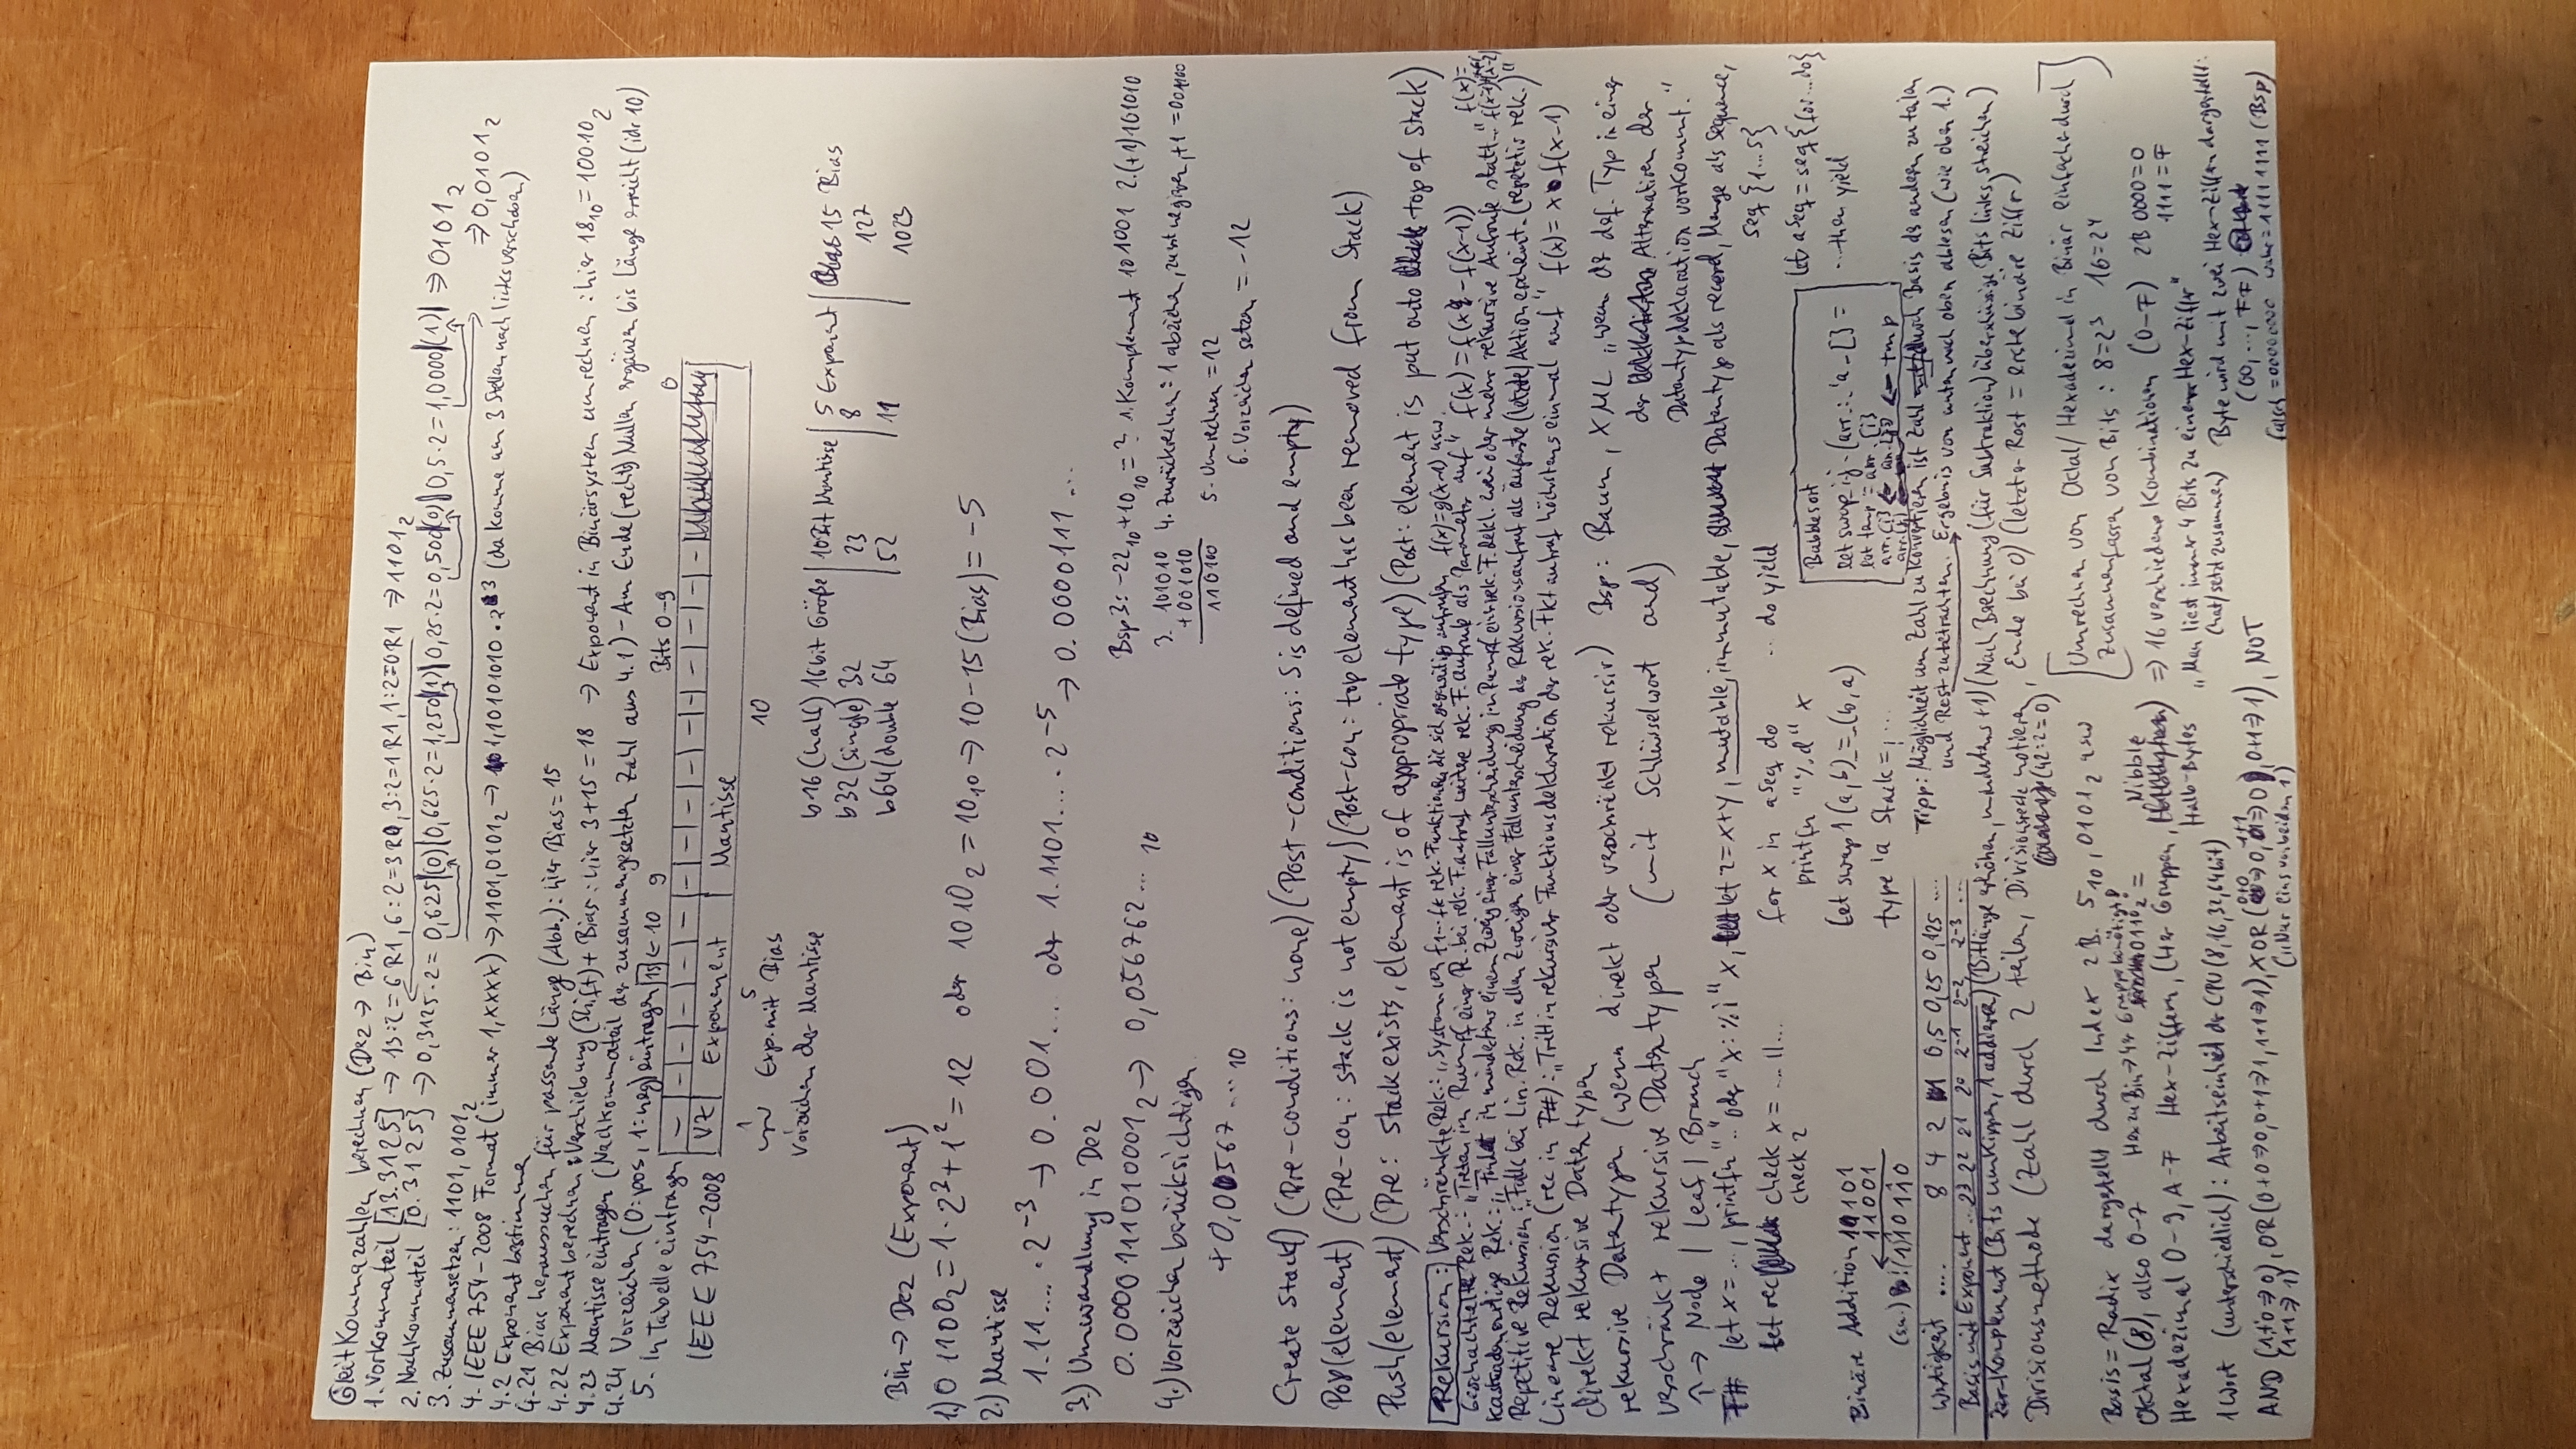 Gleitkommazahlen berechnen (Dez → Bin)
1. Vorkommateil [13.3125] → 13:2=6 R1, 6:2=3 R0, 3:2=1 R1, 1:2=0 R1 ⇒ 1101₂
2. Nachkommateil [0.3125] → 0,3125·2= 0,625 (0) | 0,625·2=1,250 (1) | 0,25·2=0,500 (0) | 0,5·2=1,0000 (1) | ⇒ 0101₂
⇒ 0,0101₂
3. Zusammensetzen: 1101,0101₂
4. IEEE 754-2008 Format (immer 1,xxxx) → 1101,0101₂ → 1,10101010 · 2³ (da Komma um 3 Stellen nach links verschoben)
4.2 Exponent bestimmen
4.21 Bias heraussuchen für passende Länge (Abb.): hier Bias = 15
4.22 Exponent berechnen: Verschiebung (Shift) + Bias: hier 3+15 = 18 → Exponent in Binärsystem umrechnen: hier 18₁₀ = 10010₂
4.23 Mantisse eintragen (Nachkommateil der zusammengesetzten Zahl aus 4.1) - Am Ende (rechts) Nullen ergänzen bis Länge erreicht (idr 10)
4.24 Vorzeichen (0:pos, 1:neg) eintragen
5. In Tabelle eintragen 15 ← 10 9 Bits 0-9 0
IEEE 754-2008 VZ Exponent Mantisse
1 5 10
Exp. mit Bias
Vorzeichen der Mantisse
b16 (half) 16bit Größe | 10Bit Mantisse | 5 Exponent | 15 Bias
b32 (single) 32 | 23 | 8 | 127
b64 (double 64 | 52 | 11 | 1023
Bin → Dez (Exponent)
1.) 0 1100₂ = 1·2³+1² = 12 oder 1010₂ = 10₁₀ → 10-15 (Bias) = -5
2.) Mantisse
1.11.... · 2⁻³ → 0.001... oder 1.1101.... · 2⁻⁵ → 0.0000111 ...
3.) Umwandlung in Dez
0.0000111010001₂ → 0,056762... ₁₀
4.) Vorzeichen berücksichtigen
+0,00567 ... ₁₀
Bsp 3: -22₁₀+10₁₀ = ? 1. Komplement 101001 2. (+1) 101010
3. 101010 4. Zurückrechnen: 1 abziehen, zuerst negieren, +1 = 001100
+001010
110100 5. Umrechnen = 12
6. Vorzeichen setzen = -12
Create Stack() (Pre-conditions: none) (Post-conditions: S is defined and empty)
Pop(element) (Pre-con: stack is not empty) (Post-con: top element has been removed from Stack)
Push(element) (Pre: stack exists, element is of appropriate type) (Post: element is put onto top of Stack)
Rekursion: Verschränkte Rek.: „System von f1...fk rek. Funktionen, die sich gegenseitig aufrufen f(x)=g(x-1) usw.
Geschachtelte Rek.: „Treten im Rumpf einer R. bei rek. F. aufruf weitere rek. F. aufrufe als Parameter auf" f(x)=f(x-f(x-1)) f(x)=
Kaskadenartige Rek.: „Findet in mindestens einem Zweig einer Fallunterscheidung im Rumpf eins rek. F. dekl. zwei oder mehr rekursive Aufrufe statt..."
Repetitive Rekursion: „Falls bei Lin. Rek. in allen Zweigen einer Fallunterscheidung der Rekursionsaufruf als äußerste (letzte) Aktion erscheint. (repetetiv rek.)"
Lineare Rekursion (rec in F#): „Tritt in rekursiver Funktionsdeklaration der rek. Fkt aufruf höchstens einmal auf" f(x)= x·f(x-1)
direkt rekursive Datentypen
rekursive Datentypen (wenn direkt oder verschränkt rekursiv) Bsp: Baum, XML „wenn der def. Typ in einer
der Alternativen der
Datentypdeklaration vorkommt."
verschränkt rekursive Datentypen (mit Schlüsselwort and)
↑→ Node | Leaf | Branch
F# let x = ..., printfn "..." oder "x: %i" x, let z=x+y, mutable, immutable, Datentyp als record, Menge als Sequence,
seq {1...5}
let rec check x = ... ||...
check 2
for x in aSeq do
printfn "%d" x
.. do yield
let aSeq = seq{for...do}
...then yield
let swap1 (a,b) = (b,a)
type 'a Stack = | ...
Bubblesort
let swap i j (arr : 'a []) =
let tmp = arr.[i]
arr.[i] ← arr.[j]
arr.[j] ← tmp
Binäre Addition 10101
11001
110110
Wertigkeit .... 8 4 2 1 0,5 0,25 0,125 ....
Basis mit Exponent .. 2³ 2² 2¹ 2⁰ 2⁻¹ 2⁻² 2⁻³ ...
Tipp: Möglichkeit um Zahl zu konvertieren ist Zahl durch Basis der anderen zu teilen
und Rest zu betrachten. Ergebnis von unten nach oben ablesen (wie oben 1.)
2er-Komplement (Bits umkippen, 1 addieren) (Bitlänge erhöhen, mindestens +1) (Nach Berechnung (für Subtraktion) überschüssige Bits links streichen)
Divisionsmethode (Zahl durch 2 teilen, Divisionsreste notieren, Ende bei 0) (letzter Rest = erste binäre Ziffer)
(42:2=0)
[Umrechnen von Oktal/Hexadezimal in Binär einfacher durch
Zusammenfassen von Bits: 8=2³ 16=2⁴]
Basis = Radix dargestellt durch Index z.B. 5₁₀, 0101₂ usw
Oktal (8), also 0-7 Hex zu Bin → 4er Gruppe benötigt! 0110₂ =
Hexadezimal 0-9, A-F Hex-Ziffern, (4er Gruppen, Nibble Halb-Bytes) ⇒ 16 verschiedene Kombinationen (0-F) zB 0000=0
1111=F
„Man liest immer 4 Bits zu einer Hex-Ziffer"
(hat/setzt zusammen)
1 Wort (unterschiedlich): Arbeitseinheit der CPU (8,16,32,64bit)
Byte wird mit zwei Hex-Ziffern dargestellt:
(00, ..., FF)
falsch = 00000000 wahr = 11111111 (Bsp)
AND (1+0⇒0), OR (0+0⇒0, 0+1⇒1, 1+1⇒1), XOR (0+0⇒0, 1+1⇒0, 0+1⇒1), NOT
(1+1⇒1) („Nur eins von beiden 1)